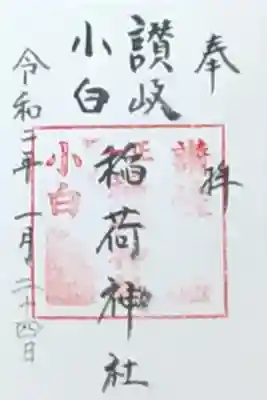 奉拝
讃岐
小白
稲荷神社
令和二年 一月二十四日
小白